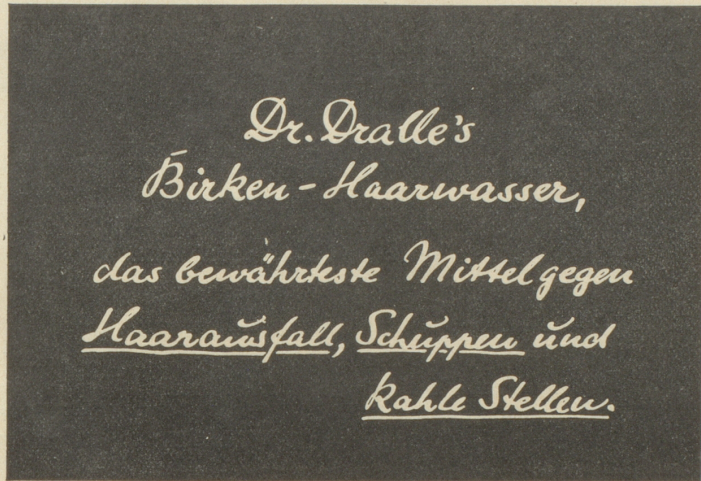 Dr. Dralle's
Birken-Haarwasser,
das bewährteste Mittel gegen
Haarausfall, Schuppen und
kahle Stellen.